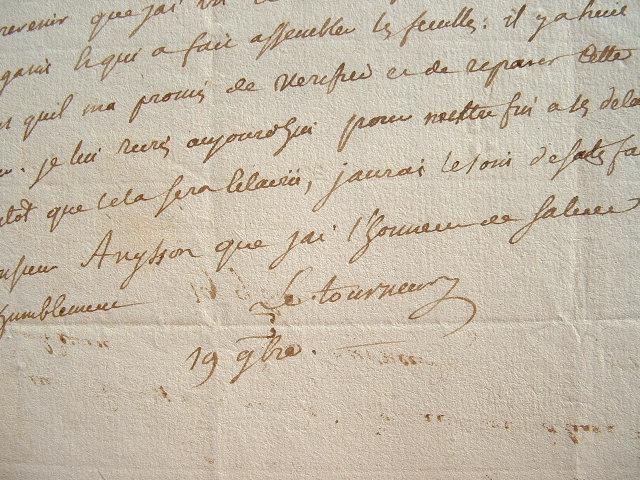 revenir que j'ai vu
qui a fait assembler les feuilles. il y a huit
quil ma promis de verifier et de reparer cette
je lui ecris aujourdhui pour mettre fin a ses delais
tôt que cela sera éclairci, j'aurai le soin de satisfa
nsieur Anysson que jai l'honneur de saluer
humblement Le tourneur
19 9bre.